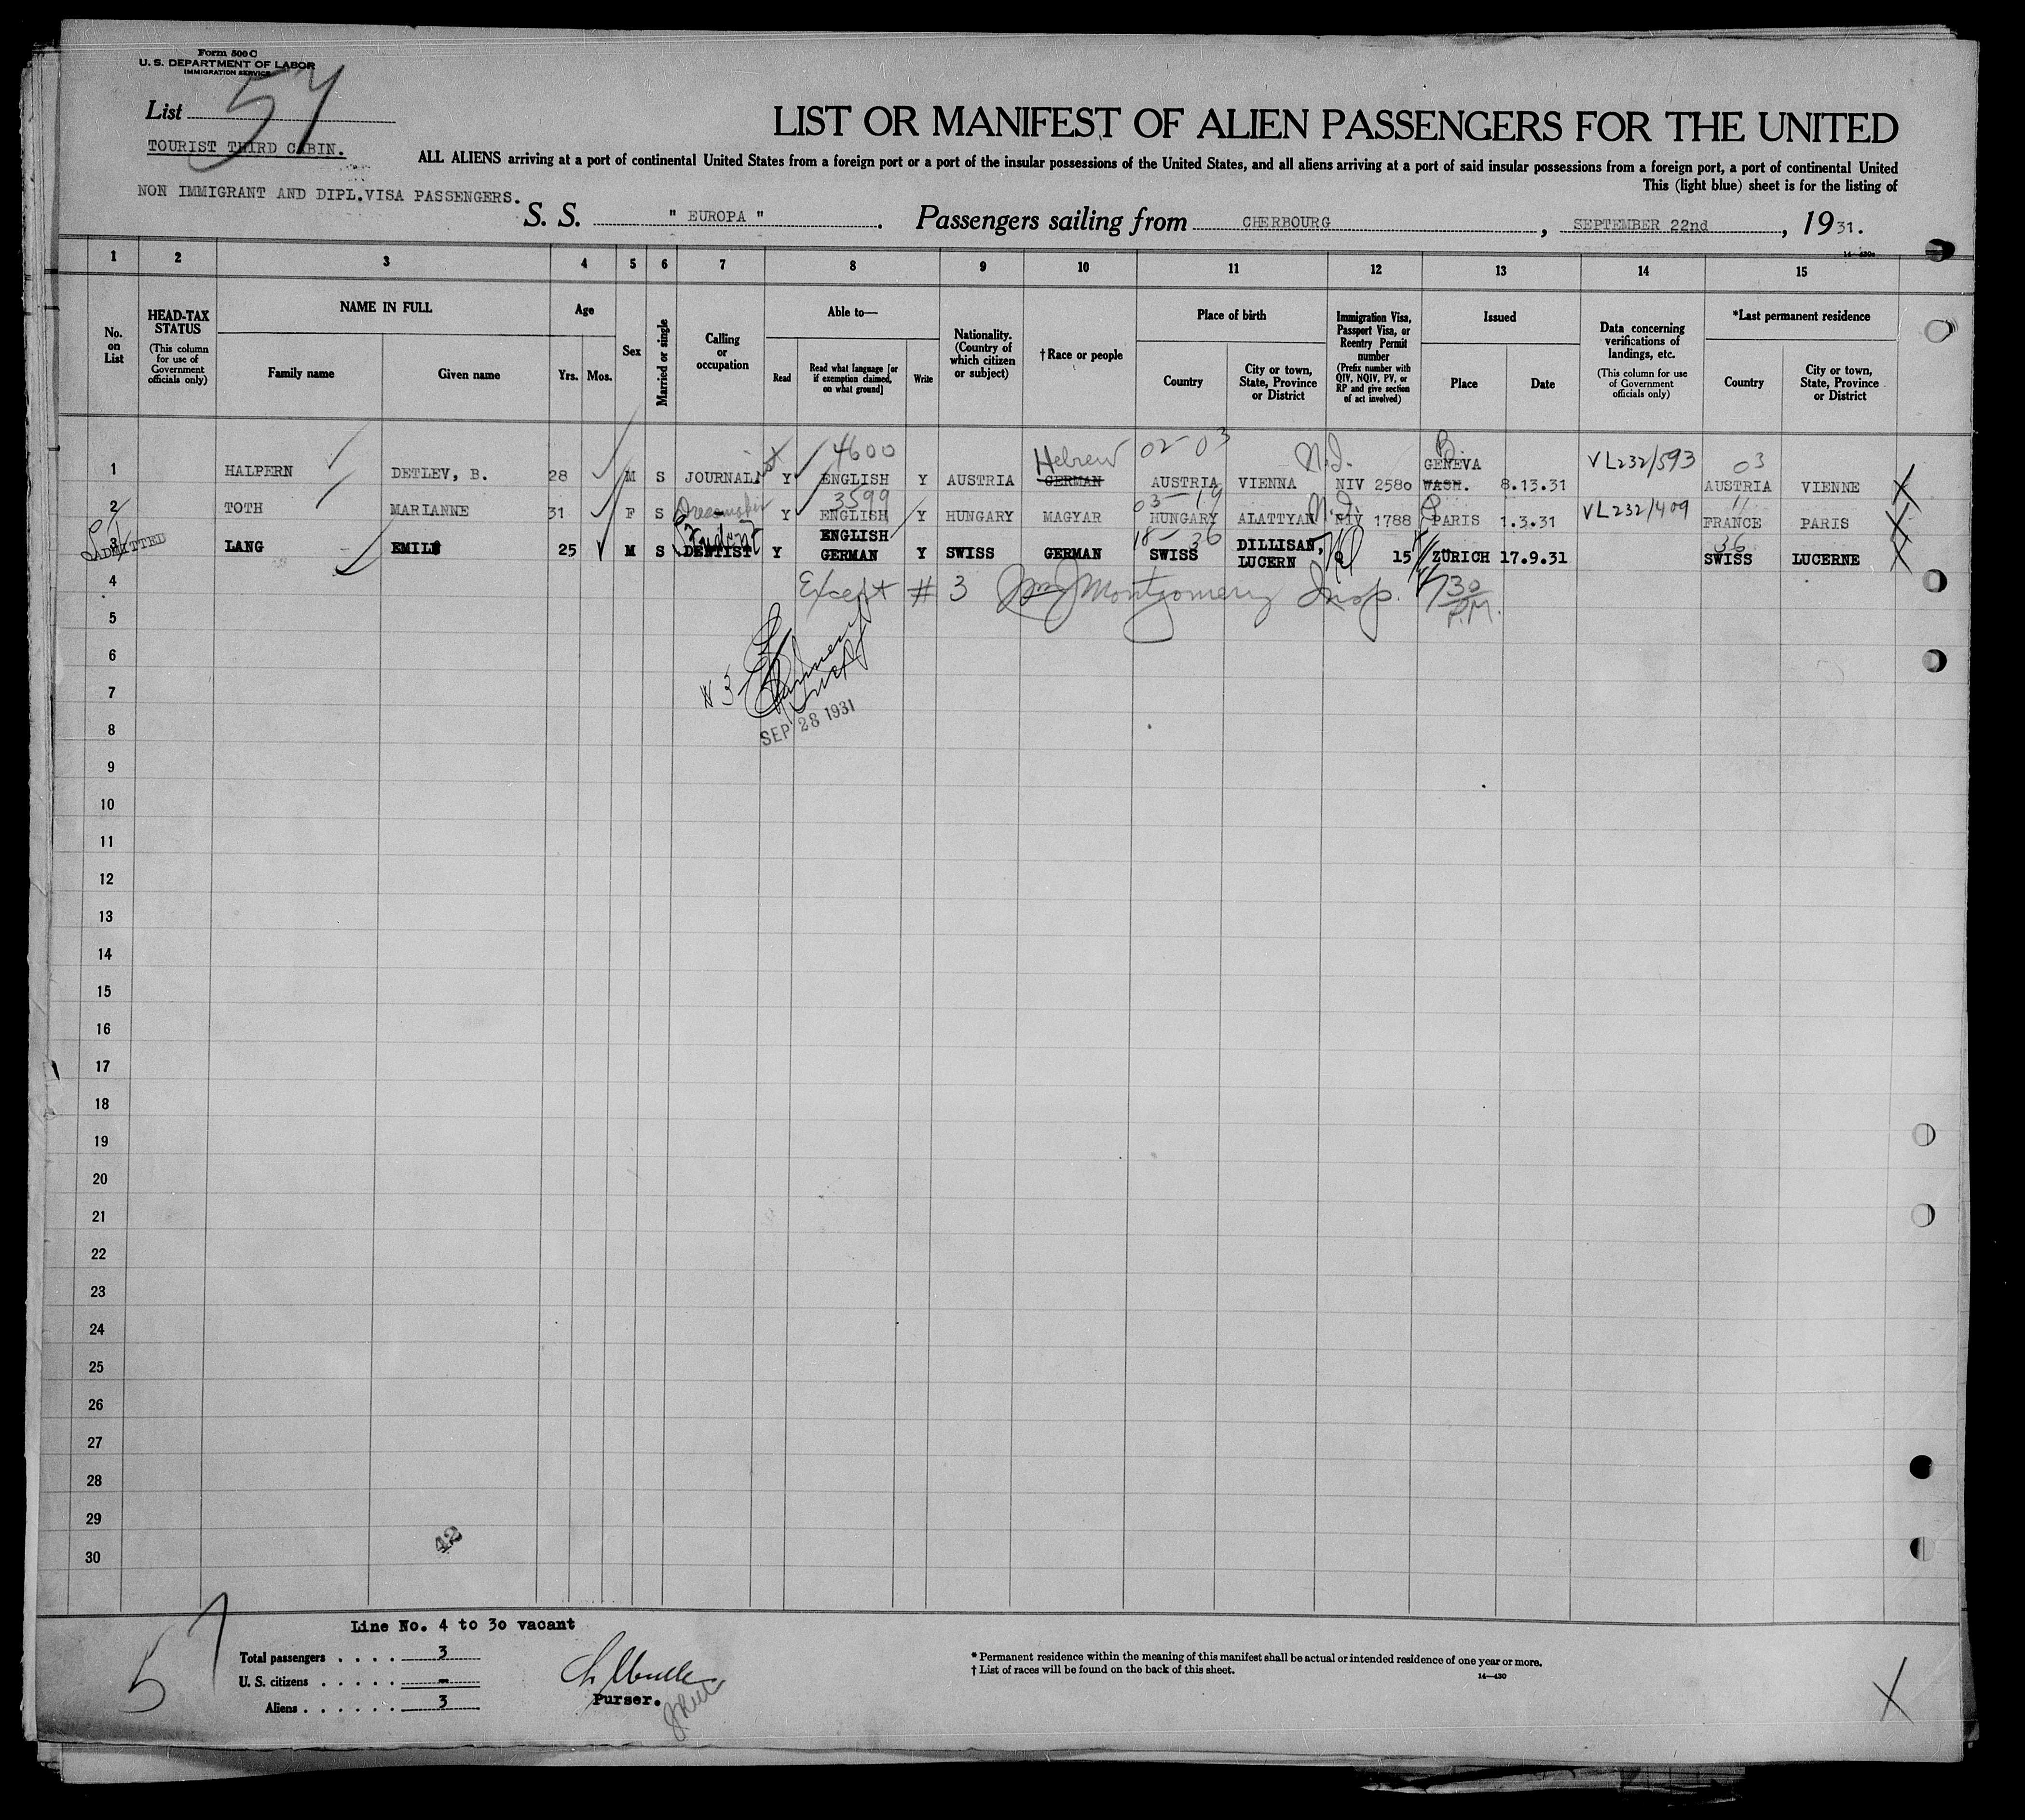 Form 500 C
U. S. DEPARTMENT OF LABOR
IMMIGRATION SERVICE
List 57
TOURIST THIRD CABIN.
NON IMMIGRANT AND DIPL.VISA PASSENGERS.
LIST OR MANIFEST OF ALIEN PASSENGERS FOR THE UNITED
ALL ALIENS arriving at a port of continental United States from a foreign port or a port of the insular possessions of the United States, and all aliens arriving at a port of said insular possessions from a foreign port, a port of continental United
This (light blue) sheet is for the listing of
S. S. " EUROPA ". Passengers sailing from CHERBOURG, SEPTEMBER 22nd, 1931.
14—430a
1 2 3 4 5 6 7 8 9 10 11 12 13 14 15
No. on List
HEAD-TAX STATUS (This column for use of Government officials only)
NAME IN FULL
Family name Given name
Age
Yrs. Mos.
Sex
Married or single
Calling or occupation
Able to—
Read Read what language [or if exemption claimed, on what ground] Write
Nationality. (Country of which citizen or subject)
†Race or people
Place of birth
Country City or town, State, Province or District
Immigration Visa, Passport Visa, or Reentry Permit number (Prefix number with QIV, NQIV, PV, or RP and give section of act involved)
Issued
Place Date
Data concerning verifications of landings, etc. (This column for use of Government officials only)
*Last permanent residence
Country City or town, State, Province or District
4600 Hebrew 02-03 N.I. B. GENEVA VL232/593 03
1 HALPERN DETLEV, B. 28 M S JOURNALIst Y ENGLISH Y AUSTRIA GERMAN AUSTRIA VIENNA NIV 2580 WASH. 8.13.31 AUSTRIA VIENNE X
Dressmaker 3599 03-19 N.I. VL232/409 11
2 TOTH MARIANNE 31 F S Y ENGLISH Y HUNGARY MAGYAR HUNGARY ALATTYAN NIV 1788 PARIS 1.3.31 FRANCE PARIS X
ADMITTED Student ENGLISH 18-36 DILLISAN, 36
3 LANG EMIL 25 M S DENTIST Y GERMAN Y SWISS GERMAN SWISS LUCERN 15 ZÜRICH 17.9.31 SWISS LUCERNE X
4 Except # 3 Montgomery Insp. 7/30 P.M.
5
6
7 # 3
8 SEP 28 1931
9
10
11
12
13
14
15
16
17
18
19
20
21
22
23
24
25
26
27
28
29
30
42
57
Line No. 4 to 30 vacant
Total passengers . . . . 3
U. S. citizens . . . . . -
Aliens . . . . . . 3
Purser.
* Permanent residence within the meaning of this manifest shall be actual or intended residence of one year or more.
† List of races will be found on the back of this sheet.
14—430
X